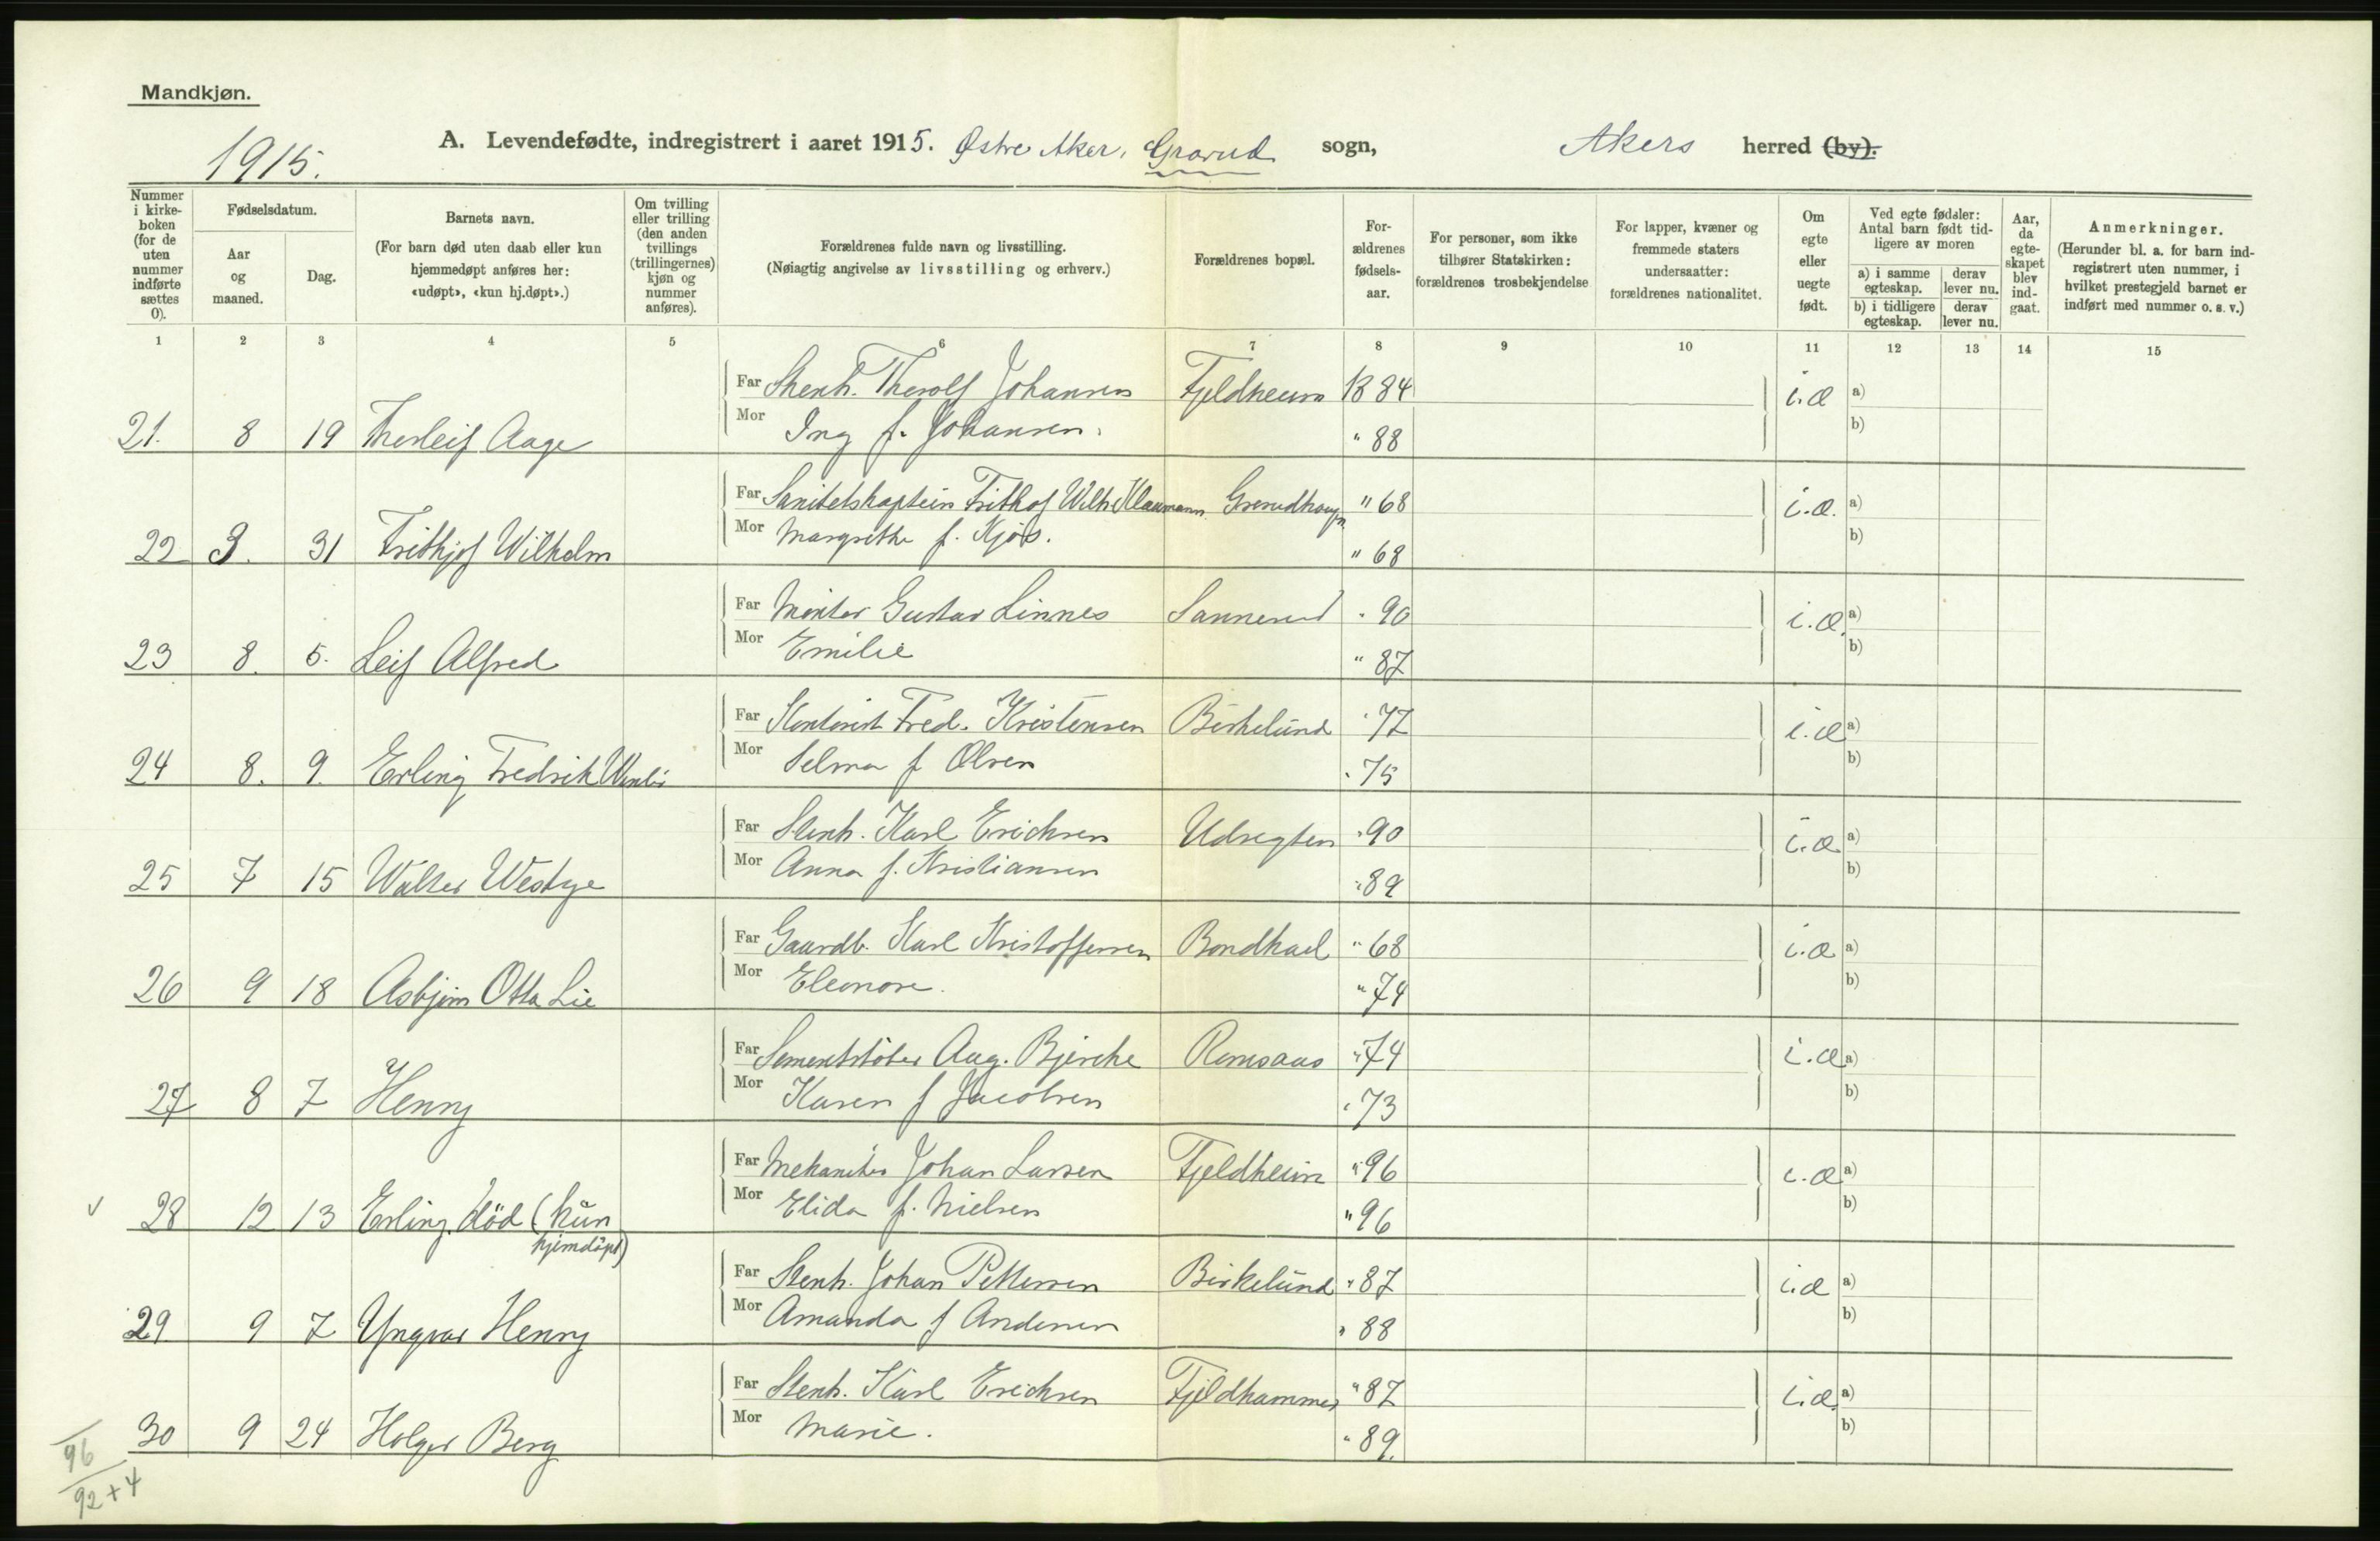 Mandkjøn.
1915.
A. Levendefødte, indregistrert i aaret 1915. Østre Aker, Grorud sogn, Akers herred (by).
Nummer i kirkeboken (for de uten nummer indførte sættes 0).
Fødselsdatum.
Aar og maaned.
Dag.
Barnets navn.
(For barn død uten daab eller kun hjemmedøpt anføres her: «udøpt», «kun hj.døpt».)
Om tvilling eller trilling (den anden tvillings (trillingernes) kjøn og nummer anføres).
Forældrenes fulde navn og livsstilling.
(Nøiagtig angivelse av livsstilling og erhverv.)
Forældrenes bopæl.
Forældrenes fødselsaar.
For personer, som ikke tilhører Statskirken: forældrenes trosbekjendelse
For lapper, kvæner og fremmede staters undersaatter: forældrenes nationalitet.
Om egte eller uegte født.
Ved egte fødsler: Antal barn født tidligere av moren
a) i samme egteskap.
derav lever nu.
b) i tidligere egteskap.
derav lever nu.
Aar, da egteskapet blev indgaat.
Anmerkninger.
(Herunder bl. a. for barn indregistrert uten nummer, i hvilket prestegjeld barnet er indført med nummer o. s. v.)
1 2 3 4 5 6 7 8 9 10 11 12 13 14 15
Far Stenh. Thorolf Johansen Fjeldheim 1884 i.æ a)
21. 8 19 Thorleif Aage Mor Ing f. Johansen. " 88 b)
Far Sanitetskaptein Frithof Wilh. Grorudhaugen " 68 i.æ. a)
22 3. 31 Frithjof Wilhelm Mor Margrethe f. Kjøs. " 68 b)
Far Montør Gustav Linnes Sannerud " 90 i.æ. a)
23 8. 5. Leif Alfred Mor Emilie " 87 b)
Far Kontorist Fred. Kristensen Birkelund " 77 i.æ a)
24 8. 9. Erling Fredrik Mor Selma f Olsen " 75 b)
Far Stenh. Karl Erichsen Udsigten " 90 i.æ a)
25 7 15 Walter Westye Mor Anna f. Kristiansen " 89 b)
Far Gaardb. Karl Kristoffersen " 68 i.æ a)
26 9 18 Asbjørn Otto Lie Mor Eleonore. " 74 b)
Far Aug. Bjerche Romsaas " 74 i.æ a)
27 8 7 Henry Mor Karen f Jacobsen " 73 b)
Far Mekaniker Johan Larsen Fjeldheim " 96 i.æ a)
28 12 13 Erling, død (kun hjemdøpt) Mor Elida f. Nielsen " 96 b)
Far Stenh. Johan Pettersen Birkelund " 87 i.æ a)
29 9 7 Yngvar Henry Mor Amanda f Andersen " 88 b)
Far Stenh. Karl Erichsen Fjeldhammer " 87 i.æ. a)
30 9 24 Holger Berg Mor Marie. " 89. b)
96
92+4